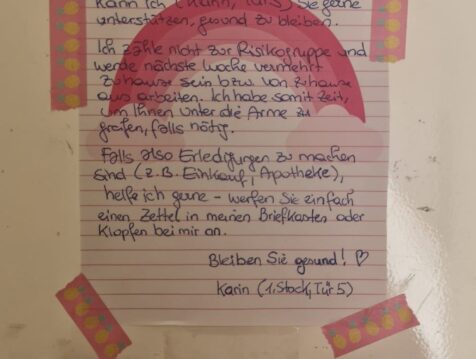 Kann ich (Karin, Tür 5) Sie gerne
unterstützen, gesund zu bleiben.
Ich zähle nicht zur Risikogruppe und
werde nächste Woche vermehrt
zuhause sein bzw. von zuhause
aus arbeiten. Ich habe somit Zeit,
um Ihnen unter die Arme zu
greifen, falls nötig.
Falls also Erledigungen zu machen
sind (z.B. Einkauf, Apotheke),
helfe ich gerne - werfen Sie einfach
einen Zettel in meinen Briefkasten oder
klopfen bei mir an.
Bleiben Sie gesund! ♡
Karin (1. Stock, Tür 5)